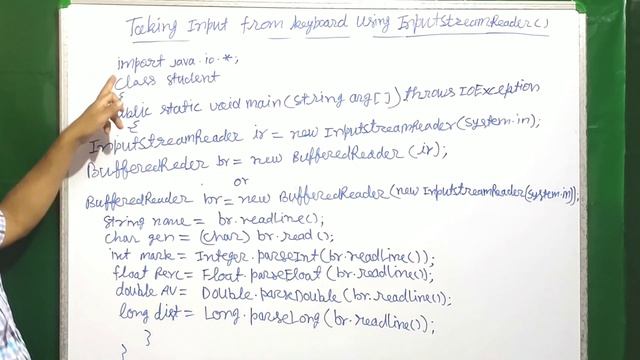 Taking Input from keyboard Using InputStreamReader()
import java.io.*;
class student
{
public static void main(string arg[]) throws IOException
{
InputStreamReader ir = new InputStreamReader(system.in);
BufferedReder br = new BufferedReader(ir);
or
BufferedReader br = new BufferedReader(new InputStreamReader(system.in));
string name = br.readline();
char gen = (char) br.read();
int mark = Integer.parseInt(br.readline());
float Perc = Float.parseFloat(br.readline());
double AV = Double.parseDouble(br.readline());
long dist = Long.parseLong(br.readline());
}
}